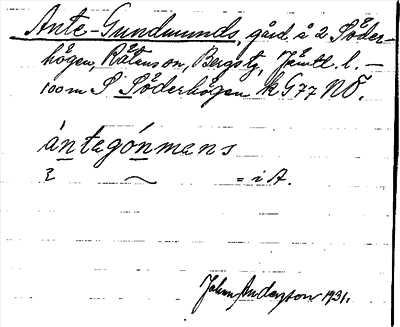 Ante-Gundmunds, gård å 2 Söder-
högen, Rätans sn, Bergs tg, Jämtl. l. –
100 m S Söderhögen k G77 NÖ.
ántegónmans
= i A.
John Anderzon 1931.